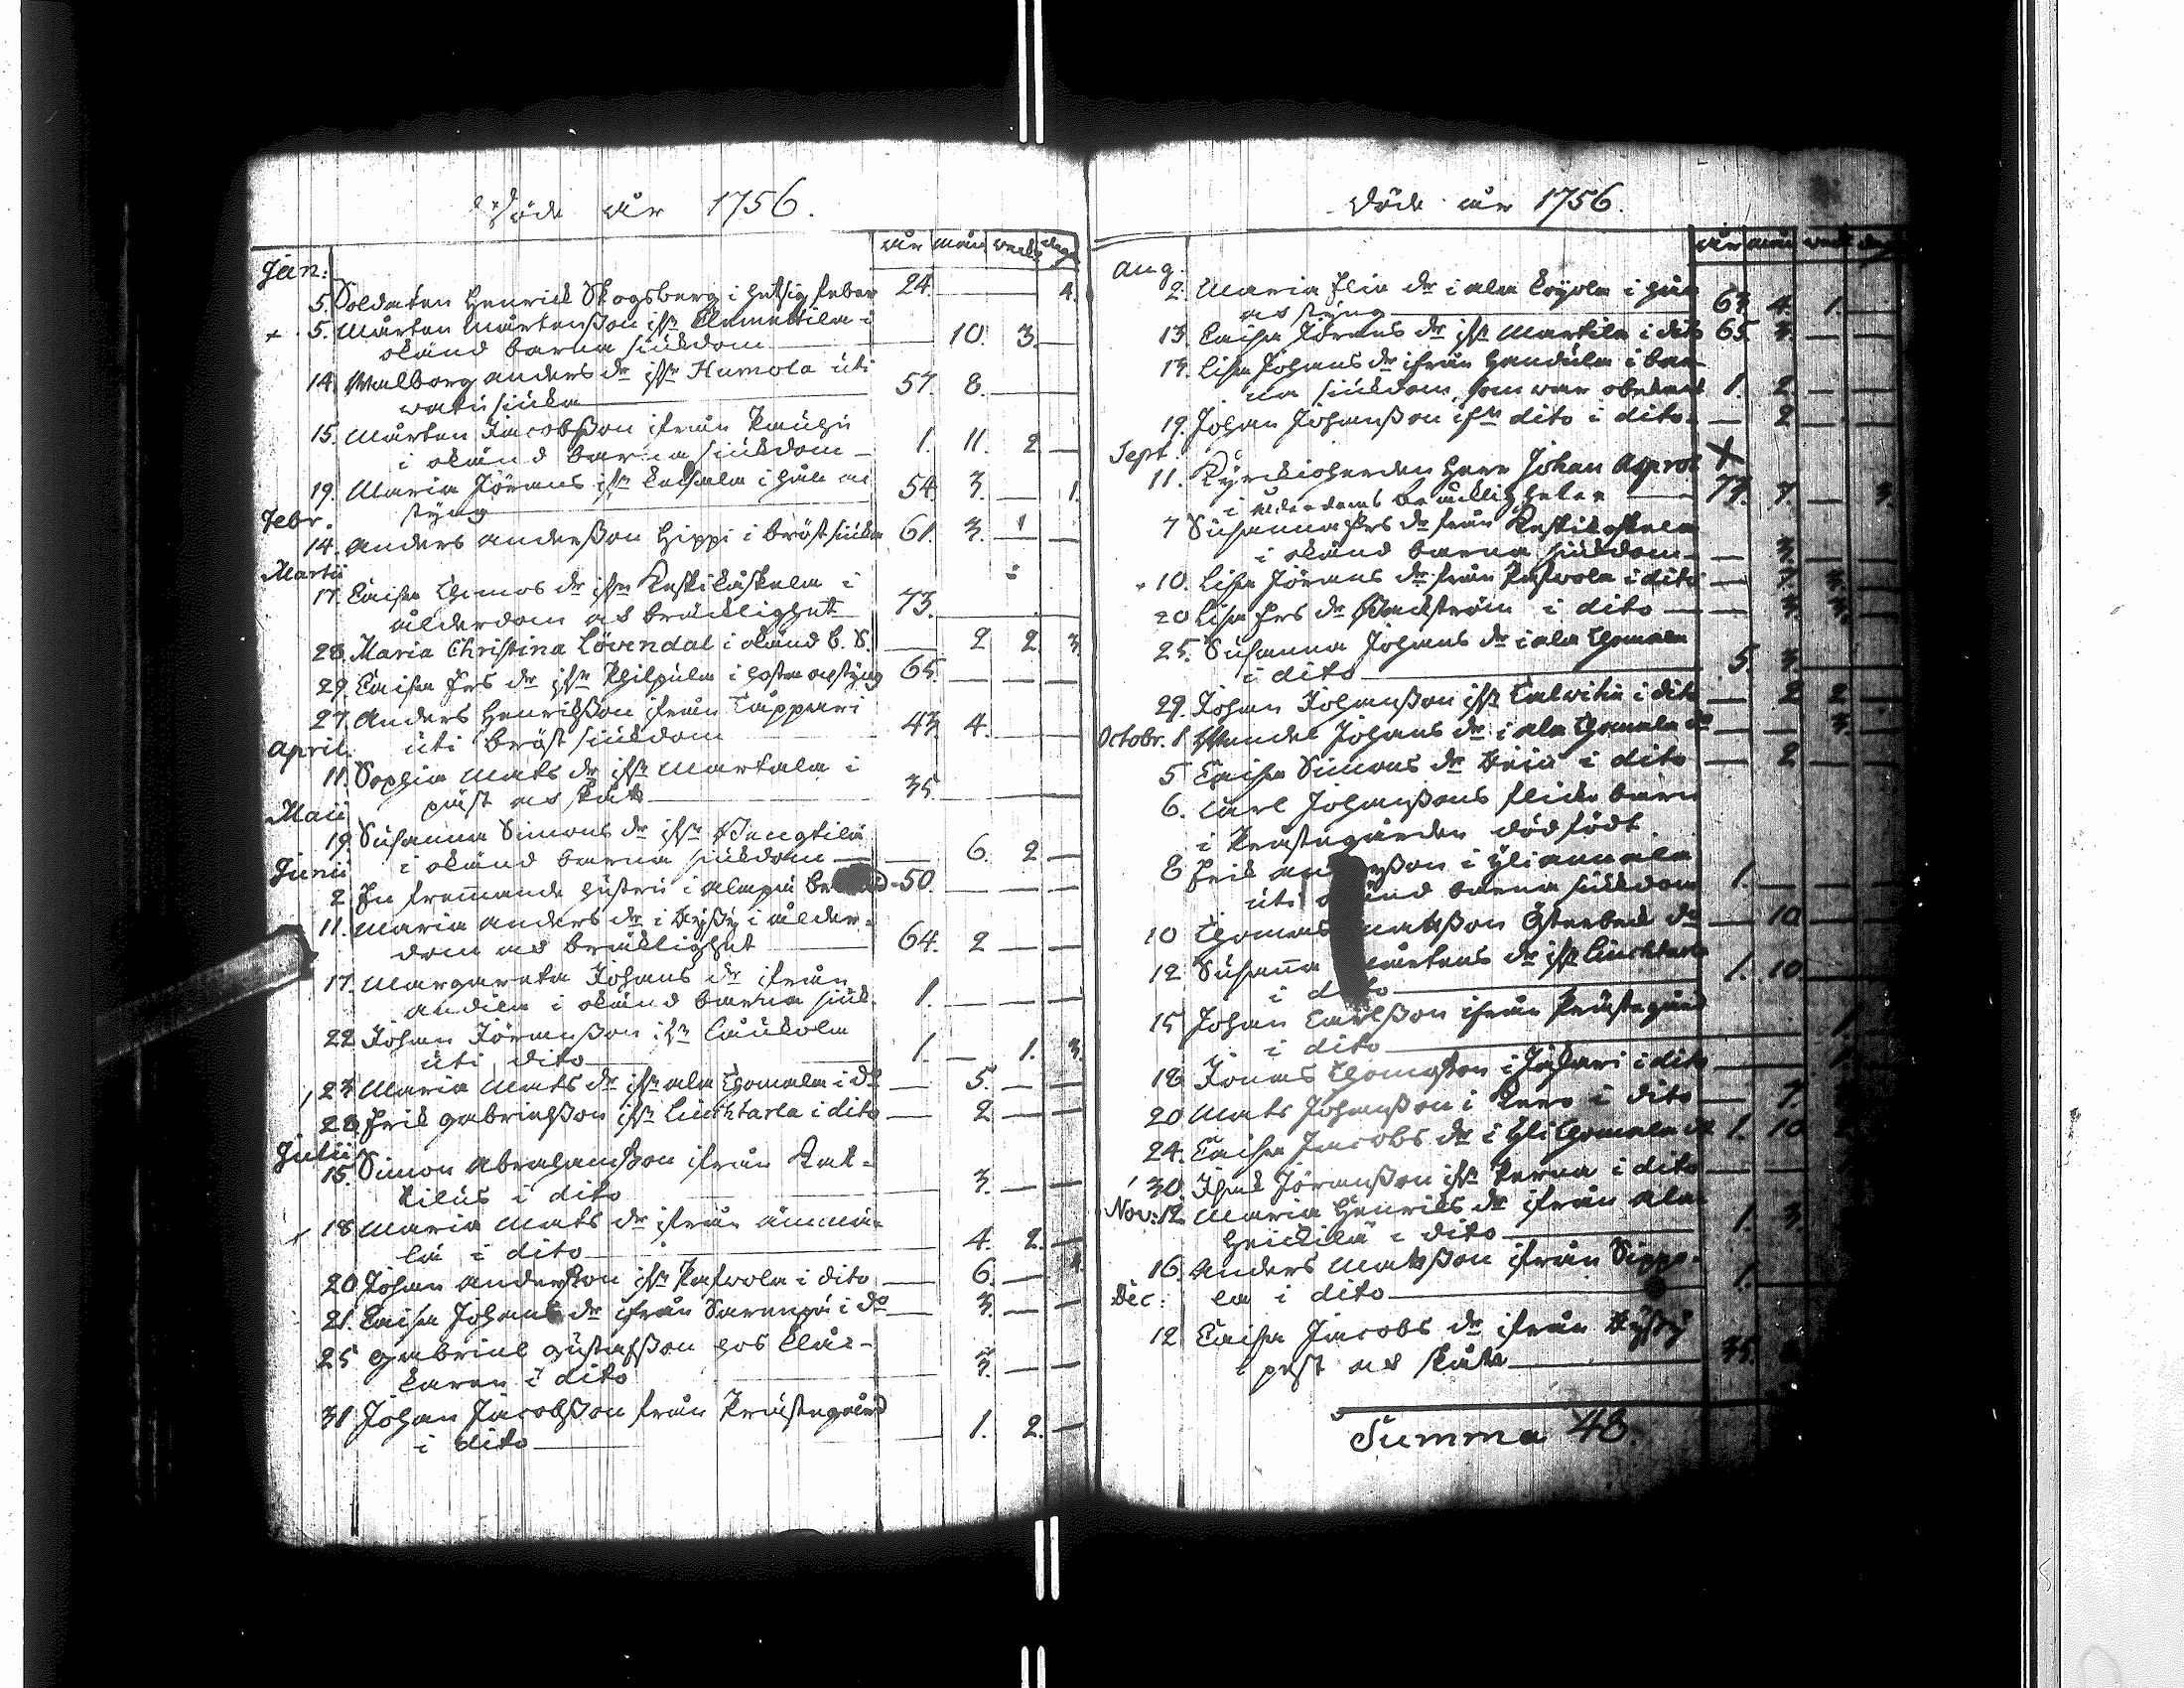 Döde åhr 1756.
åhr mån weck dag
Jan:
5. Soldaten Henrick Skogsberg i hetsig feber 24. 4.
5. Mårten Mårtensson ifrn Clemettila i
okänd barna siukdom 10. 3.
14. Walborg Anders dr ifrn Humola uti
watusiuka 57. 8.
15. Mårten Jacobsson ifrån Kauhu
i okänd barna siukdom 1. 11. 2
19. Maria Jörans ifrn i håll och
styng 54. 3. 1.
Febr.
14. Anders Andersson Hippi i bröstsiuka 61. 3. 1
Martii
17. Caisa Thomas dr ifrn Keskikåskala i
ålderdom och bräcklighet 73.
28 Maria Christina Lövendal i okänd b. S. 2 2. 3.
29. Caisa Ers dr ifrn Philpula i hosta och styng 65.
27. Anders Henricsson ifrån Cappari
uti bröst siukdom 43 4.
April
11. Sophia Mats dr ifrn Martala i
påst och skått 35.
Maii
19 Susanna Simons dr ifrn Pengtilä
i okänd barna siukdom 6. 2
Junii
2. En främmande hustru i Alapä 50.
11. Maria Anders dr i Kyssy i ålder-
dom och bräcklighet 64. 2
17. Margareta Johans dr ifrån
Andila i okänd barna siuk. 1.
22 Johan Jöransson ifrn Caukola
uti dito 1. 1. 3.
23 Maria Mats dr ifrn ala Thomala i do 5.
28 Erik Gabrielsson ifrn Liuhtarla i dito 2
Julii
15. Simon Abrahamsson ifrån Kat-
tilus i dito 3.
18 Maria Mats dr ifrån Ammä-
lä i dito 4. 2.
20 Johan Andersson ifrn Pafwola i dito 6.
21. Caisa Johans dr ifrån Sarenpä i do 3.
25 Gabriel Gustafsson hos Cläc-
karen i dito 3.
31 Johan Jacobsson från Prästegård
i dito 1. 2.
Döde åhr 1756.
åhr mån weck dag
Aug.
2. Maria Elia dr i ala Löyola i håll
och styng 63 4. 1.
13 Caisa Jörans dr ifrn Martila i dito 65. 3.
13. Lisa Johans dr ifrån Handula i bar-
na siukdom, som war obekant 1. 2.
19. Johan Johansson ifrn dito i dito 2
Sept.
11. Kyrckioherden Herr Johan Asproth
i ålderdoms bräckligheter 77. 7. 3.
7 Susanna Ers dr från Keskikåskala
i okänd barna siukdom 3.
10. Lisa Jörans dr från Pafwola i dito 7. 3.
20 Lisa Ers dr Backström i dito 3. 3.
25. Susanna Johans dr i ala Thomala
i dito 5. 3.
29. Johan Johansson ifrn Talwitie i dito 2 2
Octobr. 1 Johans dr i ala Thomala do 3.
5 Caisa Simons dr i dito 2
6. Carl Johanssons flicke barn
i Prästegården dödfödt.
8 Erik i Yliannala
uti barna siukdom 1.
10 Thomas Matsson Österback do 10
12 Susanna Mårtens dr ifrn Liuhtarla
i dito 1. 10
15 Johan Carlsson ifrån Prästegård
i dito 1.
18 Jonas Thomasson i Juhari i dito 1.
20 Mats Johansson i Kero i dito 7.
24. Caisa Jacobs dr i yli Thomala do 1. 10
30. Isak Jöransson ifrn Perna i dito
Nov: 12. Maria Henriks dr ifrån ala
Heickilä i dito 1. 3.
16. Anders Matsson ifrån Sippo-
la i dito 1.
Dec:
12 Caisa Jacobs dr ifrån Kyssy
i påst och skått 35.
Summa 48.